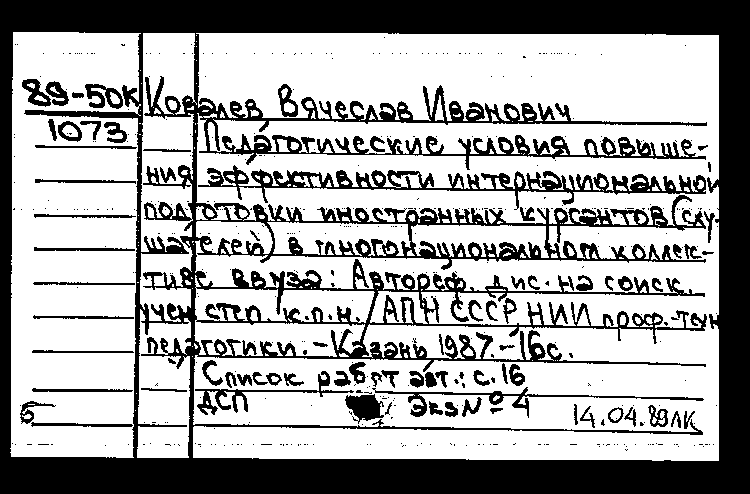 89-50К Ковалев Вячеслав Иванович
1073 Педагогические условия повыше-
ния эффективности интернациональной
подготовки иностранных курсантов (слу-
шателей) в многонациональном коллек-
тиве ввуза: Автореф. дис. на соиск.
учен. степ. к.п.н. / АПН СССР, НИИ проф.-техн.
педагогики. - Казань, 1987. - 16с.
Список работ авт.: с. 16
ДСП Экз № 4 14.04.89ЛК
б